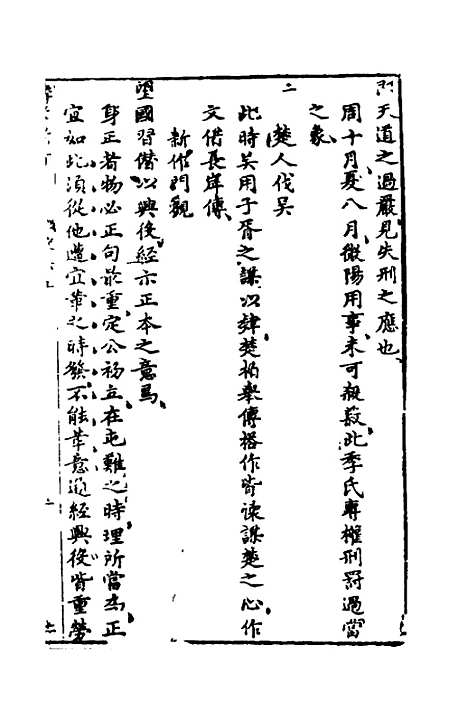 天道之過嚴見失刑之應也
周十月夏八月微陽用事未可殺菽此季氏專權刑罰過當
之象
二
楚人伐吴
此時吴用子胥之謀以肄楚柏舉傳皆作誤謀楚之心作
文借長岸傳
新作門觀
望國習僭以興後經示正本之意焉
身正者物必正句最重定公初立在屯難之時理所當為正
宜如此須從他遭宜革之時雖不能革意通經興後皆重勞